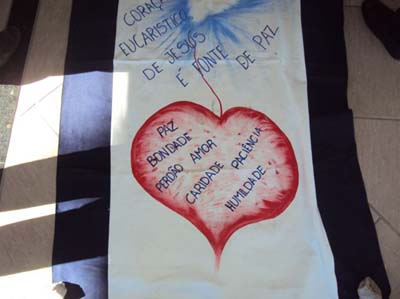 CORAÇÃ
EUCARISTICO
DE JESUS
E FONTE
DE PAZ
PAZ
BONDADE
PERDÃO AMOR
CARIDADE PACIÊNCIA
HUMILDADE